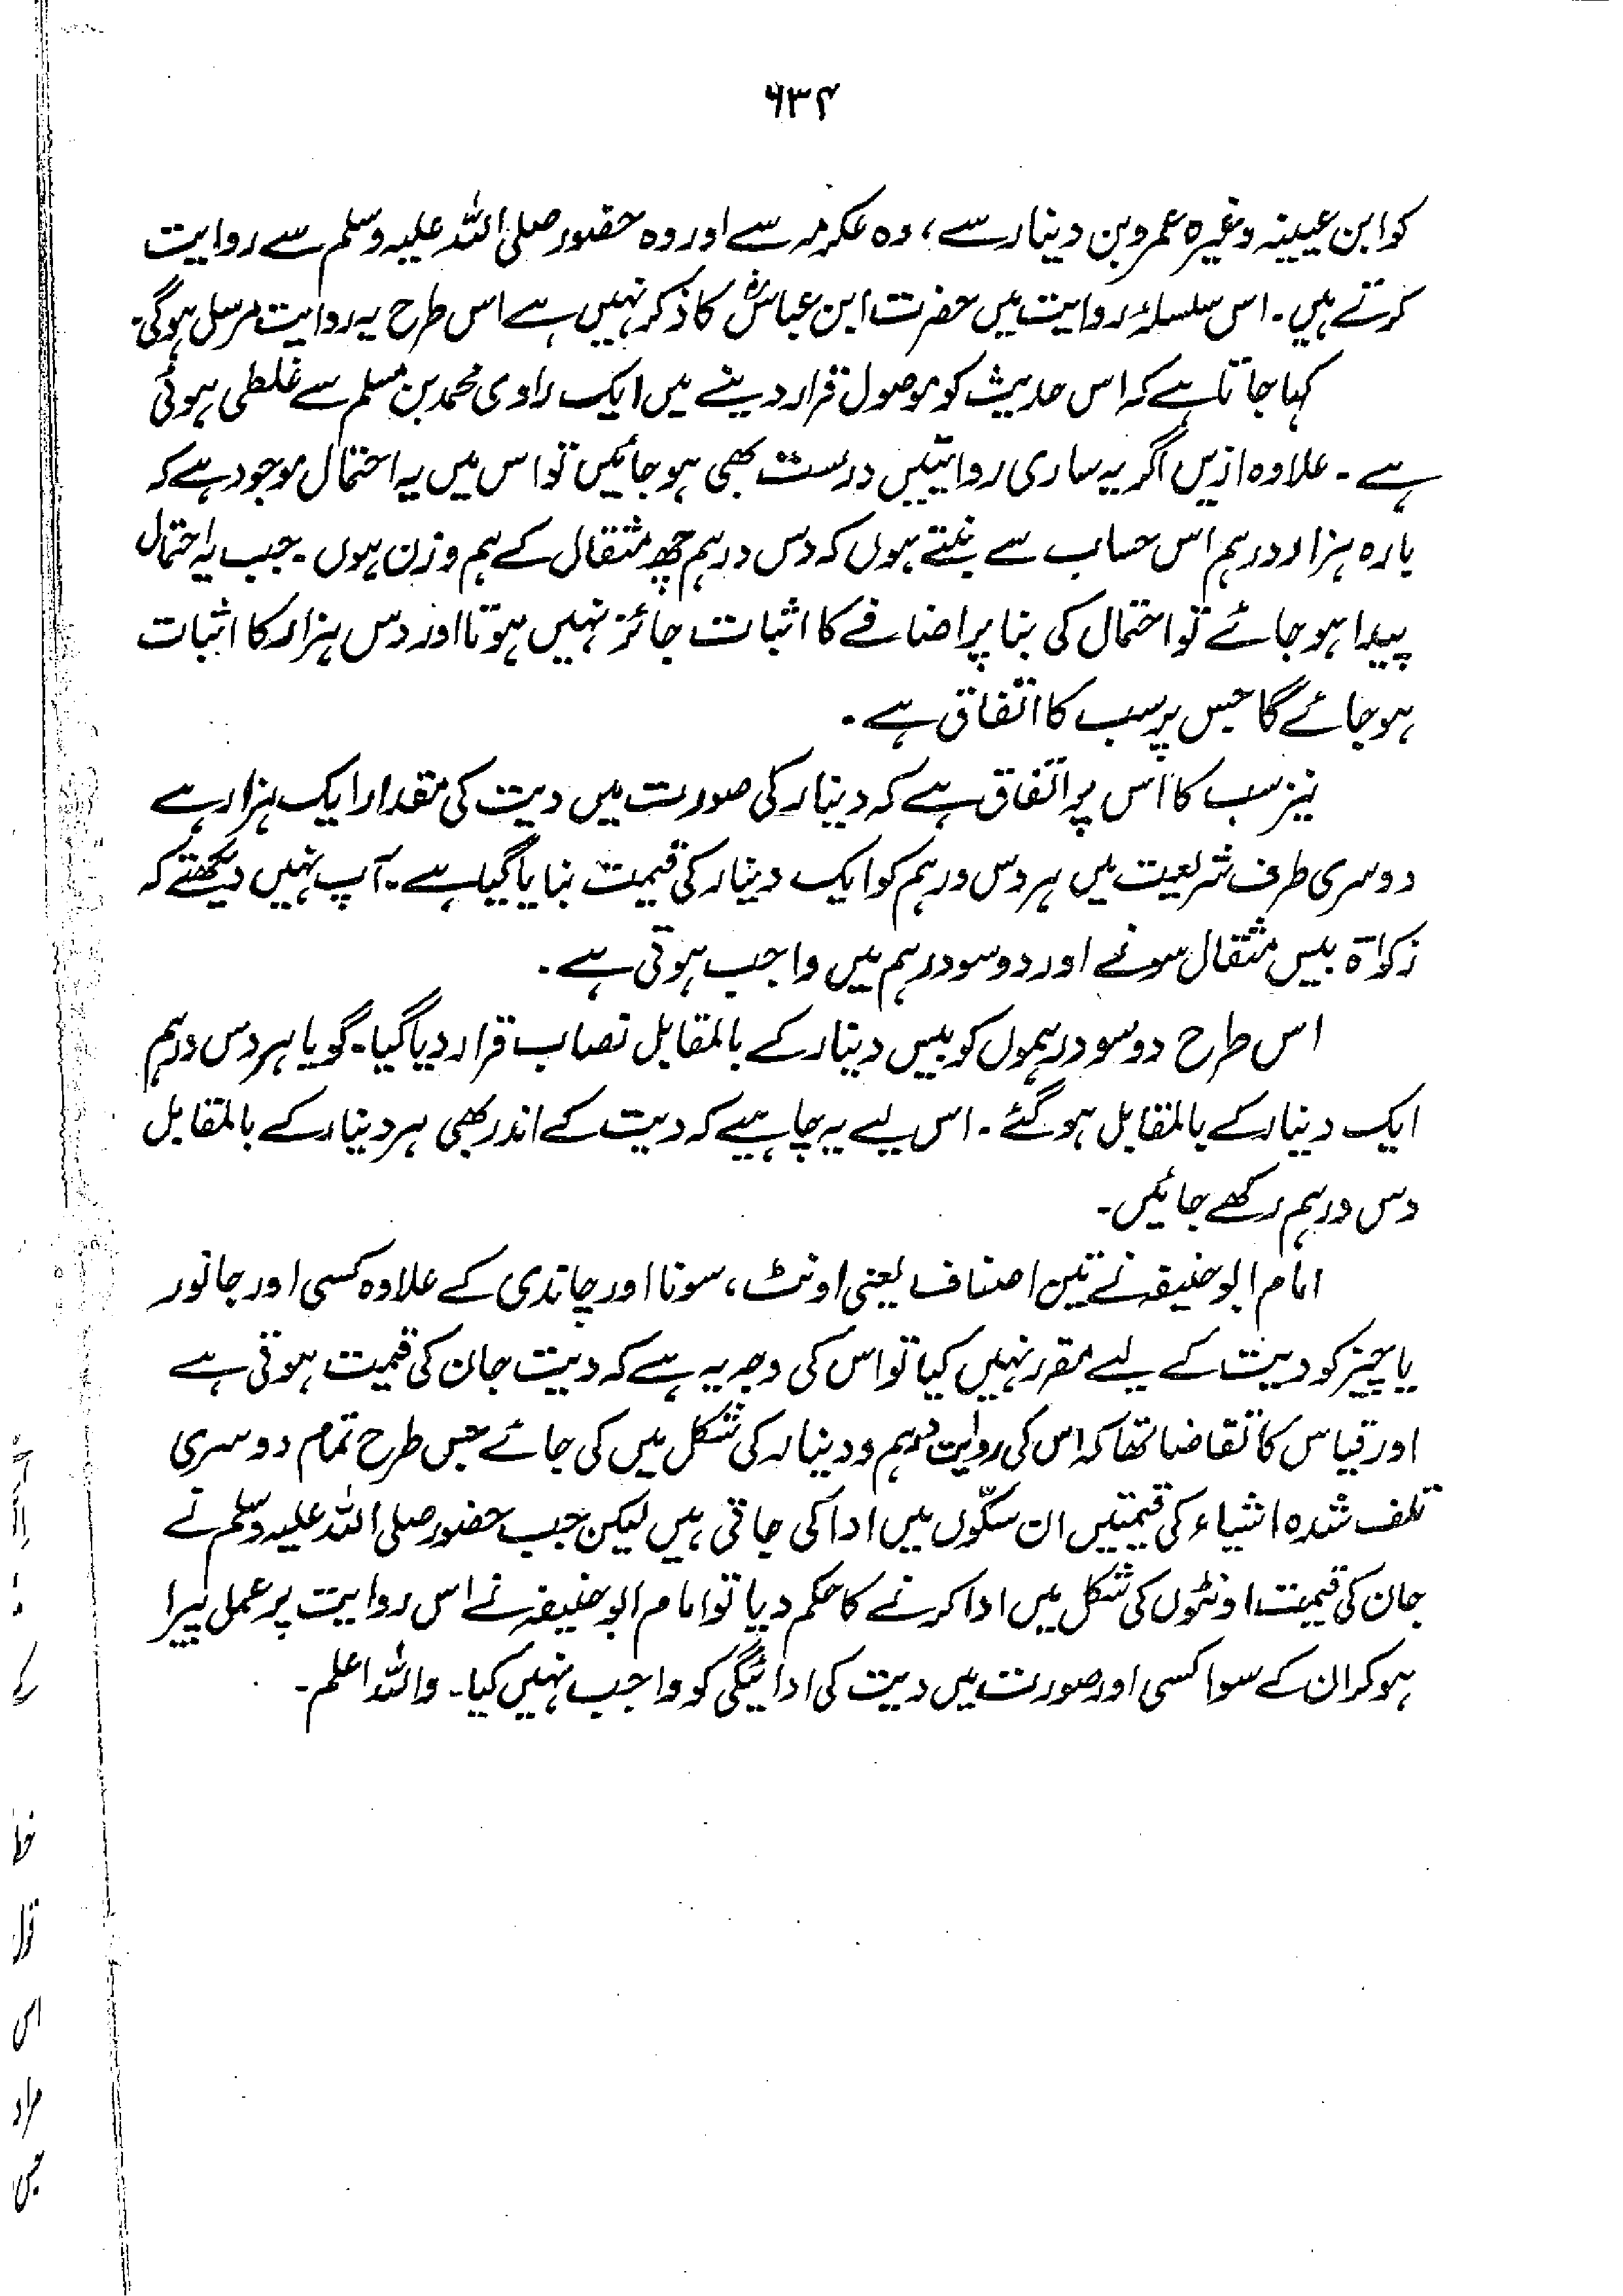 ۶۳۴
کو ابن عیینہ وغیرہ عمرو بن دینار سے، وہ عکرمہ سے اور وہ حضور صلی اللہ علیہ وسلم سے روایت
کرتے ہیں۔ اس سلسلۂ روایت میں حضرت ابن عباسؓ کا ذکر نہیں ہے اس طرح یہ روایت مرسل ہوگی۔
کہا جاتا ہے کہ اس حدیث کو موصول قرار دینے میں ایک راوی محمد بن مسلم سے غلطی ہوئی
ہے۔ علاوہ ازیں اگر یہ ساری روایتیں درست بھی ہو جائیں تو اس میں یہ احتمال موجود ہے کہ
بارہ ہزار درہم اس حساب سے بنتے ہوں کہ دس درہم چھ مثقال کے ہم وزن ہوں۔ جب یہ احتمال
پیدا ہو جائے تو احتمال کی بنا پر اضافے کا اثبات جائز نہیں ہوتا اور دس ہزار کا اثبات
ہو جائے گا جس پر سب کا اتفاق ہے۔
نیز سب کا اس پر اتفاق ہے کہ دینار کی صورت میں دیت کی مقدار ایک ہزار ہے
دوسری طرف شریعت میں ہر دس درہم کو ایک دینار کی قیمت بنایا گیا ہے۔ آپ نہیں دیکھتے کہ
زکوٰۃ بیس مثقال سونے اور دو سو درہم میں واجب ہوتی ہے۔
اس طرح دو سو درہموں کو بیس دینار کے بالمقابل نصاب قرار دیا گیا۔ گویا ہر دس درہم
ایک دینار کے بالمقابل ہو گئے۔ اس لیے یہ چاہیے کہ دیت کے اندر بھی ہر دینار کے بالمقابل
دس درہم رکھے جائیں۔
امام ابو حنیفہ نے تین اصناف یعنی اونٹ، سونا اور چاندی کے علاوہ کسی اور جانور
یا چیز کو دیت کے لیے مقرر نہیں کیا تو اس کی وجہ یہ ہے کہ دیت جان کی قیمت ہوتی ہے
اور قیاس کا تقاضا تھا کہ اس کی روایت درہم و دینار کی شکل میں کی جائے جس طرح تمام دوسری
تلف شدہ اشیاء کی قیمتیں ان سکّوں میں ادا کی جاتی ہیں لیکن جب حضور صلی اللہ علیہ وسلم نے
جان کی قیمت اونٹوں کی شکل میں ادا کرنے کا حکم دیا تو امام ابو حنیفہ نے اس روایت پر عمل پیرا
ہو کر ان کے سوا کسی اور صورت میں دیت کی ادائیگی کو واجب نہیں کیا۔ واللہ اعلم۔
کے
قول
اس
مراد
جس